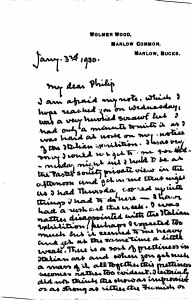 WOLMER WOOD,
MARLOW COMMON,
MARLOW, BUCKS.
Jany. 3rd 1930.
My dear Philip
I am afraid my note, which I
hope reached you on Wednesday,
was a very hurried scrawl but I
had only a minute to write it as I
was hard at work on my notes
of the Italian Exhibition. I was very
sorry I could not get to
midday, might but I held to be at
the private view in the
afternoon and get in me
as I had Thursday
things I had to do here — I have
had a rush of this week. I was
rather disappointed with the Italian
Exhibition, perhaps I expected too
much but it seemed to me heavy
and at the same time a little
weak. There is a sort of prettiness in
Italian art and when you get such
a mass of it all together this prettiness
becomes rather too evident. I certainly
did not think the show as impressive
or as strong as either the Flemish or